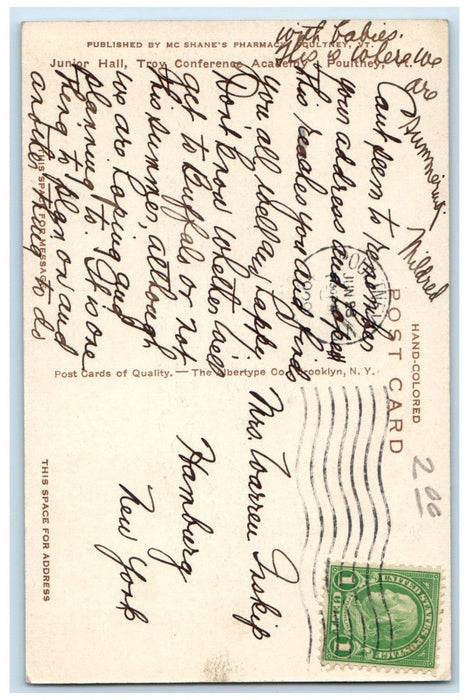 PUBLISHED BY MC SHANE'S PHARMACY, POULTNEY, VT.
Junior Hall, Troy Conference Academy, Poultney, Vt.
HAND-COLORED
POST CARD
THIS SPACE FOR MESSAGE
THIS SPACE FOR ADDRESS
Post Cards of Quality. — The Albertype Co., Brooklyn, N. Y.
Can't seem to remember
your address and hope
this reaches you and finds
you all well and happy.
Don't know whether we'll
get to Buffalo or not
this summer, although
we are hoping and
planning to. It is one
thing to plan on and
another thing to do
with babies.
This is where we
are
summering
Mildred
Mrs. Warren Inskip
Hamburg
New York
2.00
UNITED STATES POSTAGE
1 CENT 1